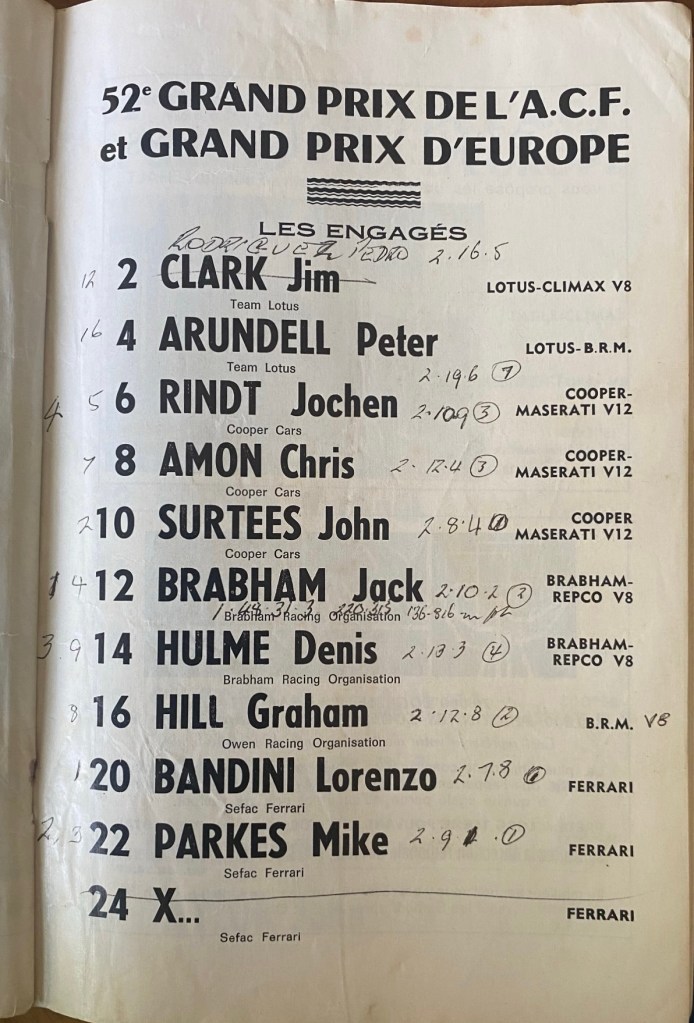 52e GRAND PRIX DE L'A.C.F.
et GRAND PRIX D'EUROPE
LES ENGAGÉS
RODRIGUEZ PEDRO 2.16.5
12 2 CLARK Jim LOTUS-CLIMAX V8
Team Lotus
16 4 ARUNDELL Peter LOTUS-B.R.M.
Team Lotus
2.19.6 7
4 5 6 RINDT Jochen 2.10.9 3 COOPER-
MASERATI V12
Cooper Cars
7 8 AMON Chris 2.12.4 3 COOPER-
MASERATI V12
Cooper Cars
2 10 SURTEES John 2.8.4 COOPER
MASERATI V12
Cooper Cars
1 4 12 BRABHAM Jack 2.10.2 3 BRABHAM-
REPCO V8
1.48.31.3 220.315 136.816 mph
Brabham Racing Organisation
3 9 14 HULME Denis 2.13.3 4 BRABHAM-
REPCO V8
Brabham Racing Organisation
8 16 HILL Graham 2.12.8 2 B.R.M. V8
Owen Racing Organisation
1 20 BANDINI Lorenzo 2.7.8 FERRARI
Sefac Ferrari
2, 3 22 PARKES Mike 2.9.1 1 FERRARI
Sefac Ferrari
24 X... FERRARI
Sefac Ferrari